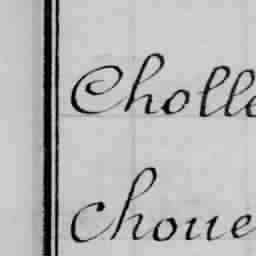 Cholle
Choue